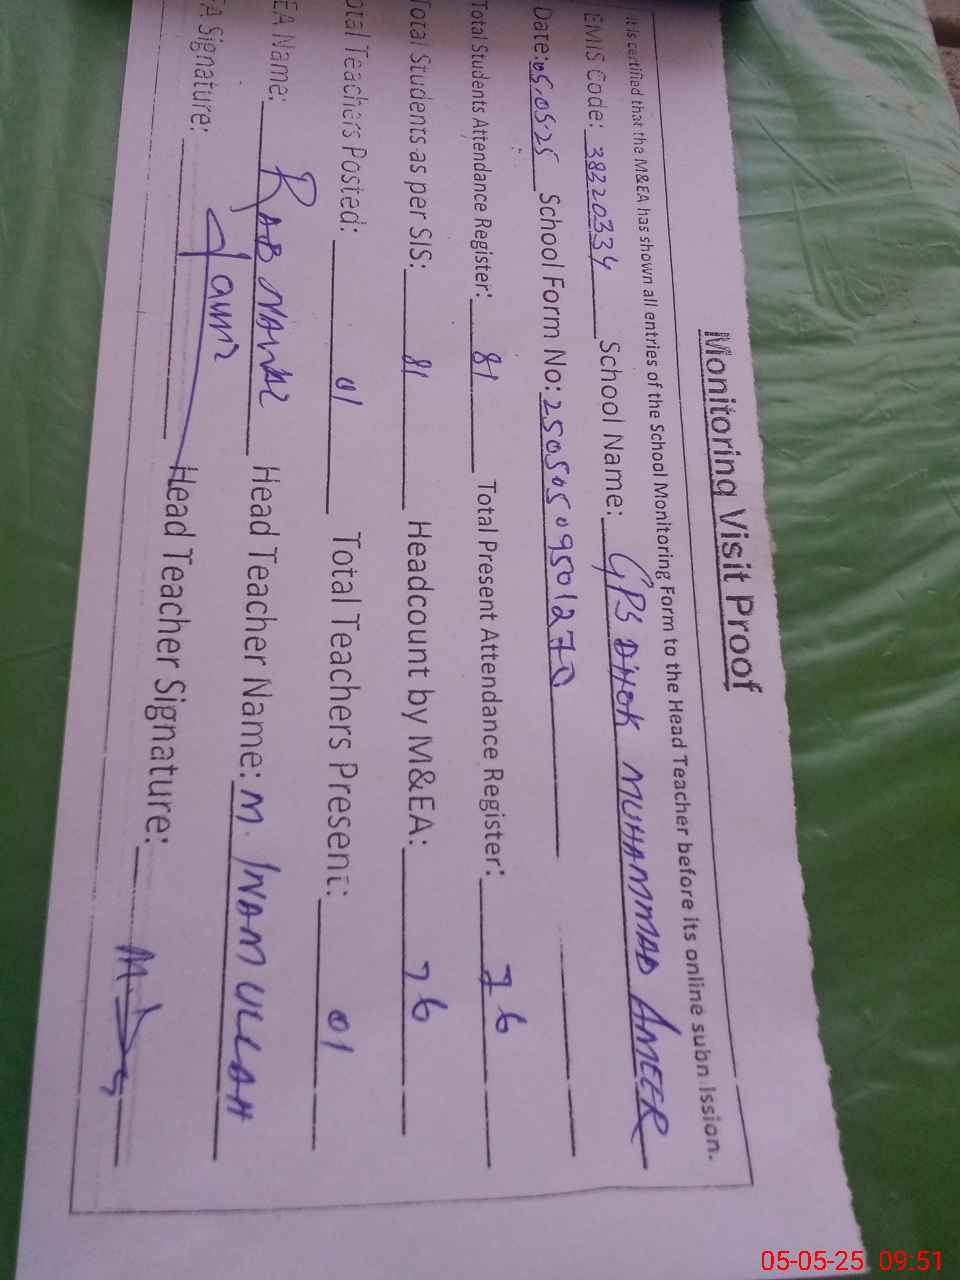 Monitoring Visit Proof
It is certified that the M&EA has shown all entries of the School Monitoring Form to the Head Teacher before its online subn ission.
EMIS Code: 38320334 School Name: GPS DHOK MUHAMMAD AMEER
Date: 05.0525 School Form No: 25050509501270
Total Students Attendance Register: 81 Total Present Attendance Register: 76
Total Students as per SIS: 81 Headcount by M&EA: 76
otal Teachers Posted: 01 Total Teachers Present: 01
EA Name: RAB NAWAZ Head Teacher Name: M. INAM ULLAH
EA Signature: Head Teacher Signature:
05-05-25 09:51